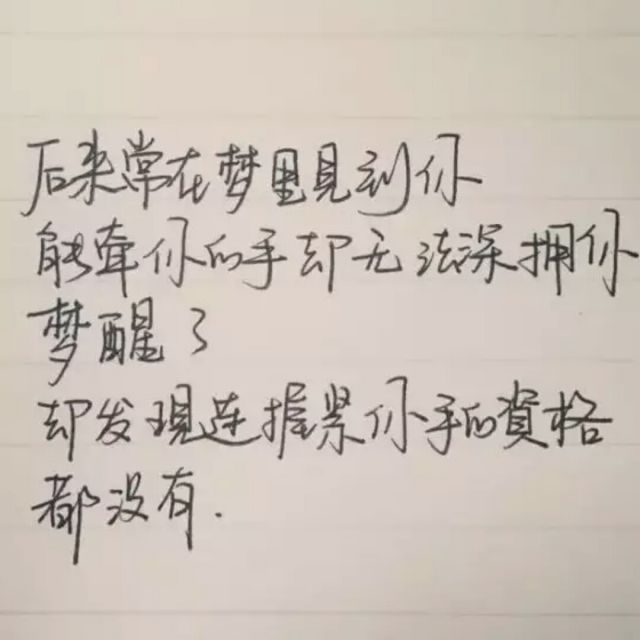 后来常在梦里見到你
能牵你的手却无法深拥你
梦醒了
却发現连握紧你手的資格
都没有.